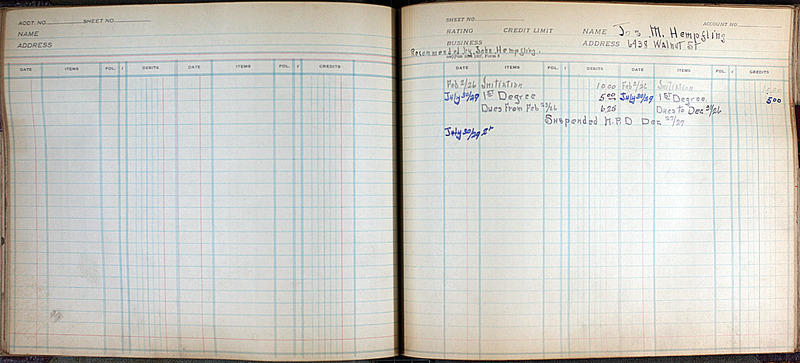 ACCT. NO. SHEET NO.
NAME
ADDRESS
DATE ITEMS FOL. √ DEBITS DATE ITEMS FOL. √ CREDITS
SHEET NO. ACCOUNT NO.
RATING CREDIT LIMIT NAME Jos. M. Hempfling
BUSINESS ADDRESS 6438 Walnut St
Recommended by John Hempfling.
DATE ITEMS FOL. √ DEBITS DATE ITEMS FOL. √ CREDITS
Feb 2/26 Initiation 10 00 Feb 2/26 Initiation
July 30/29 1st Degree 5 00 July 30/29 1st Degree. 5 00
Dues from Feb 6.25 Dues to Dec 31/26
Suspended N.P.D. Dec 27/27
July 30/29